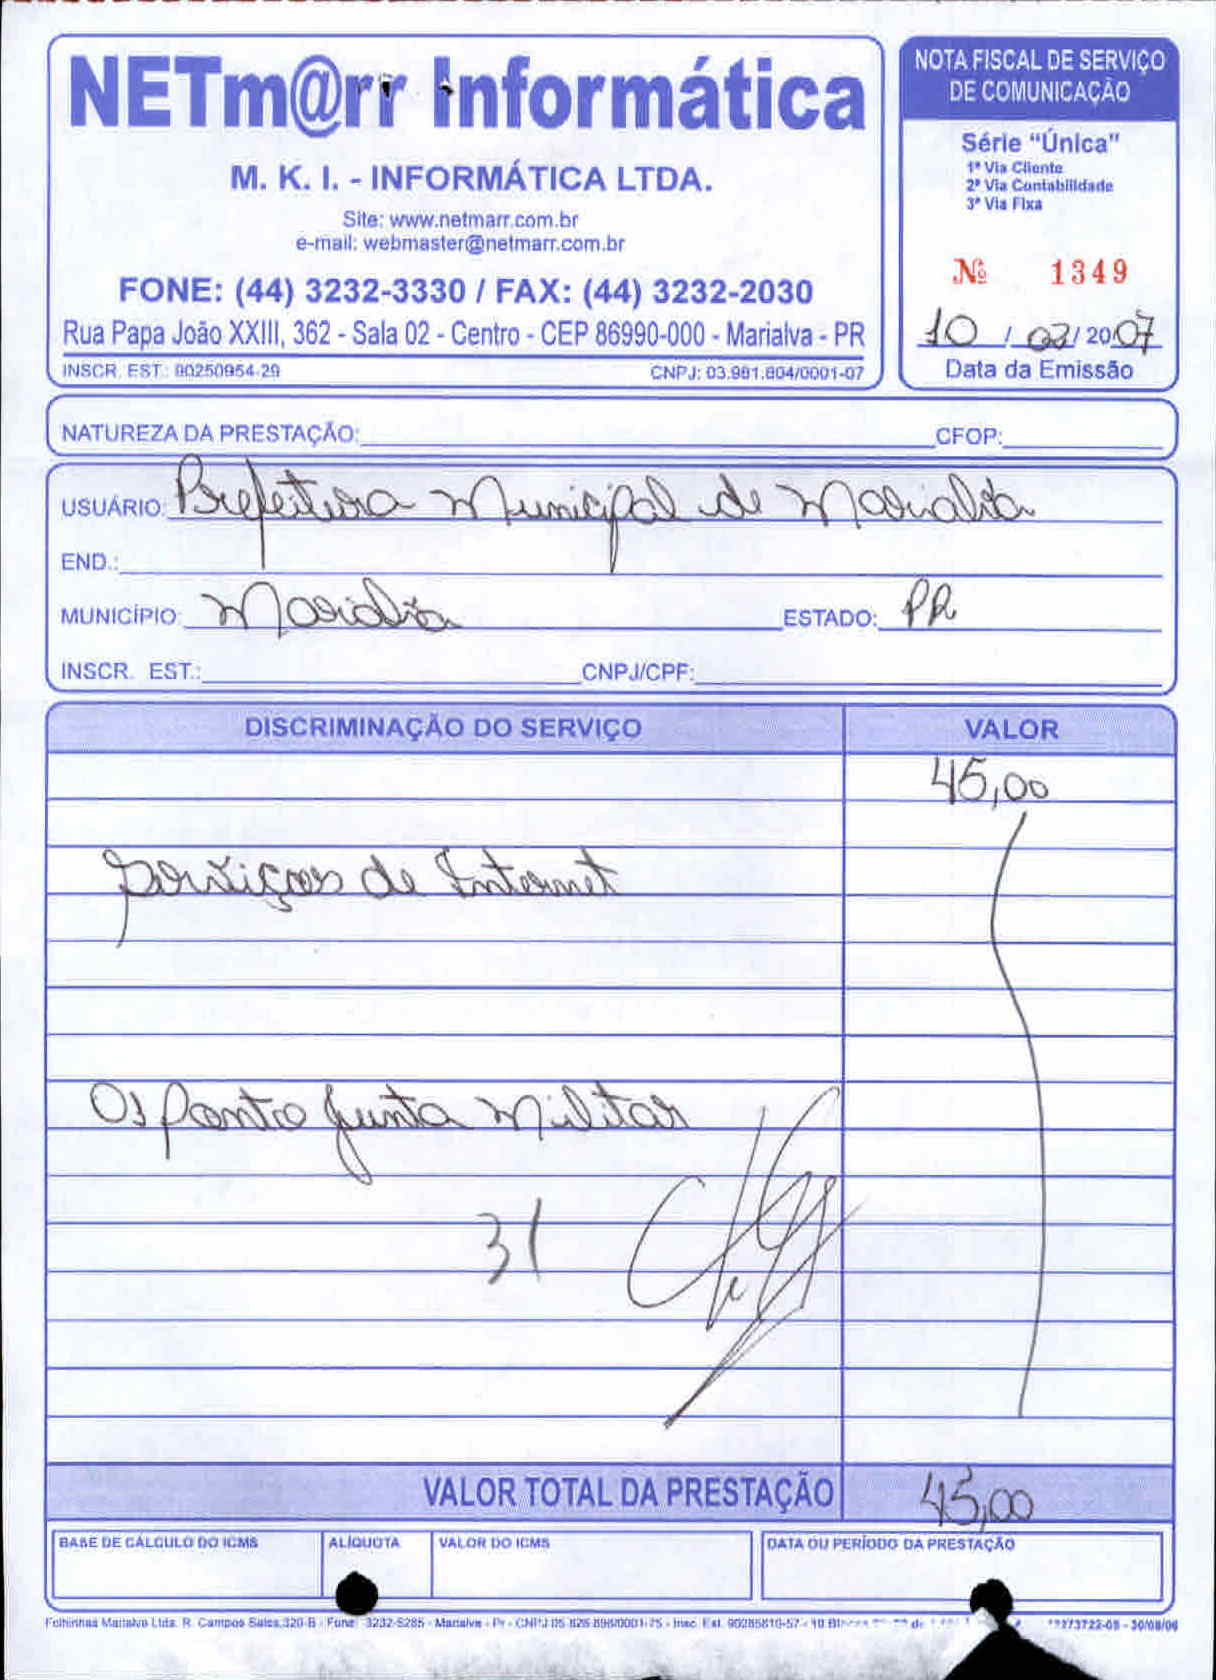 NETm@rr Informática
M. K. I. - INFORMÁTICA LTDA.
Site: www.netmarr.com.br
e-mail: webmaster@netmarr.com.br
FONE: (44) 3232-3330 / FAX: (44) 3232-2030
Rua Papa João XXIII, 362 - Sala 02 - Centro - CEP 86990-000 - Marialva - PR
INSCR. EST.: 90250954-29 CNPJ: 03.981.804/0001-07
NOTA FISCAL DE SERVIÇO
DE COMUNICAÇÃO
Série "Única"
1ª Via Cliente
2ª Via Contabilidade
3ª Via Fixa
Nº 1349
10 / 03 / 2007
Data da Emissão
NATUREZA DA PRESTAÇÃO: CFOP:
USUÁRIO: Prefeitura Municipal de Marialva
END.:
MUNICÍPIO: Marialva ESTADO: PR
INSCR. EST.: CNPJ/CPF:
DISCRIMINAÇÃO DO SERVIÇO VALOR
45,00
Serviços de Internet
01 Ponto Junta Militar
31
VALOR TOTAL DA PRESTAÇÃO 45,00
BASE DE CÁLCULO DO ICMS ALÍQUOTA VALOR DO ICMS DATA OU PERÍODO DA PRESTAÇÃO
Folhinhas Marialva Ltda. R. Campos Sales, 320-B - Fone: 3232-5285 - Marialva - Pr - CNPJ 05.826.896/0001-75 - Insc. Est. 90285810-57 - 10 - 30/08/06